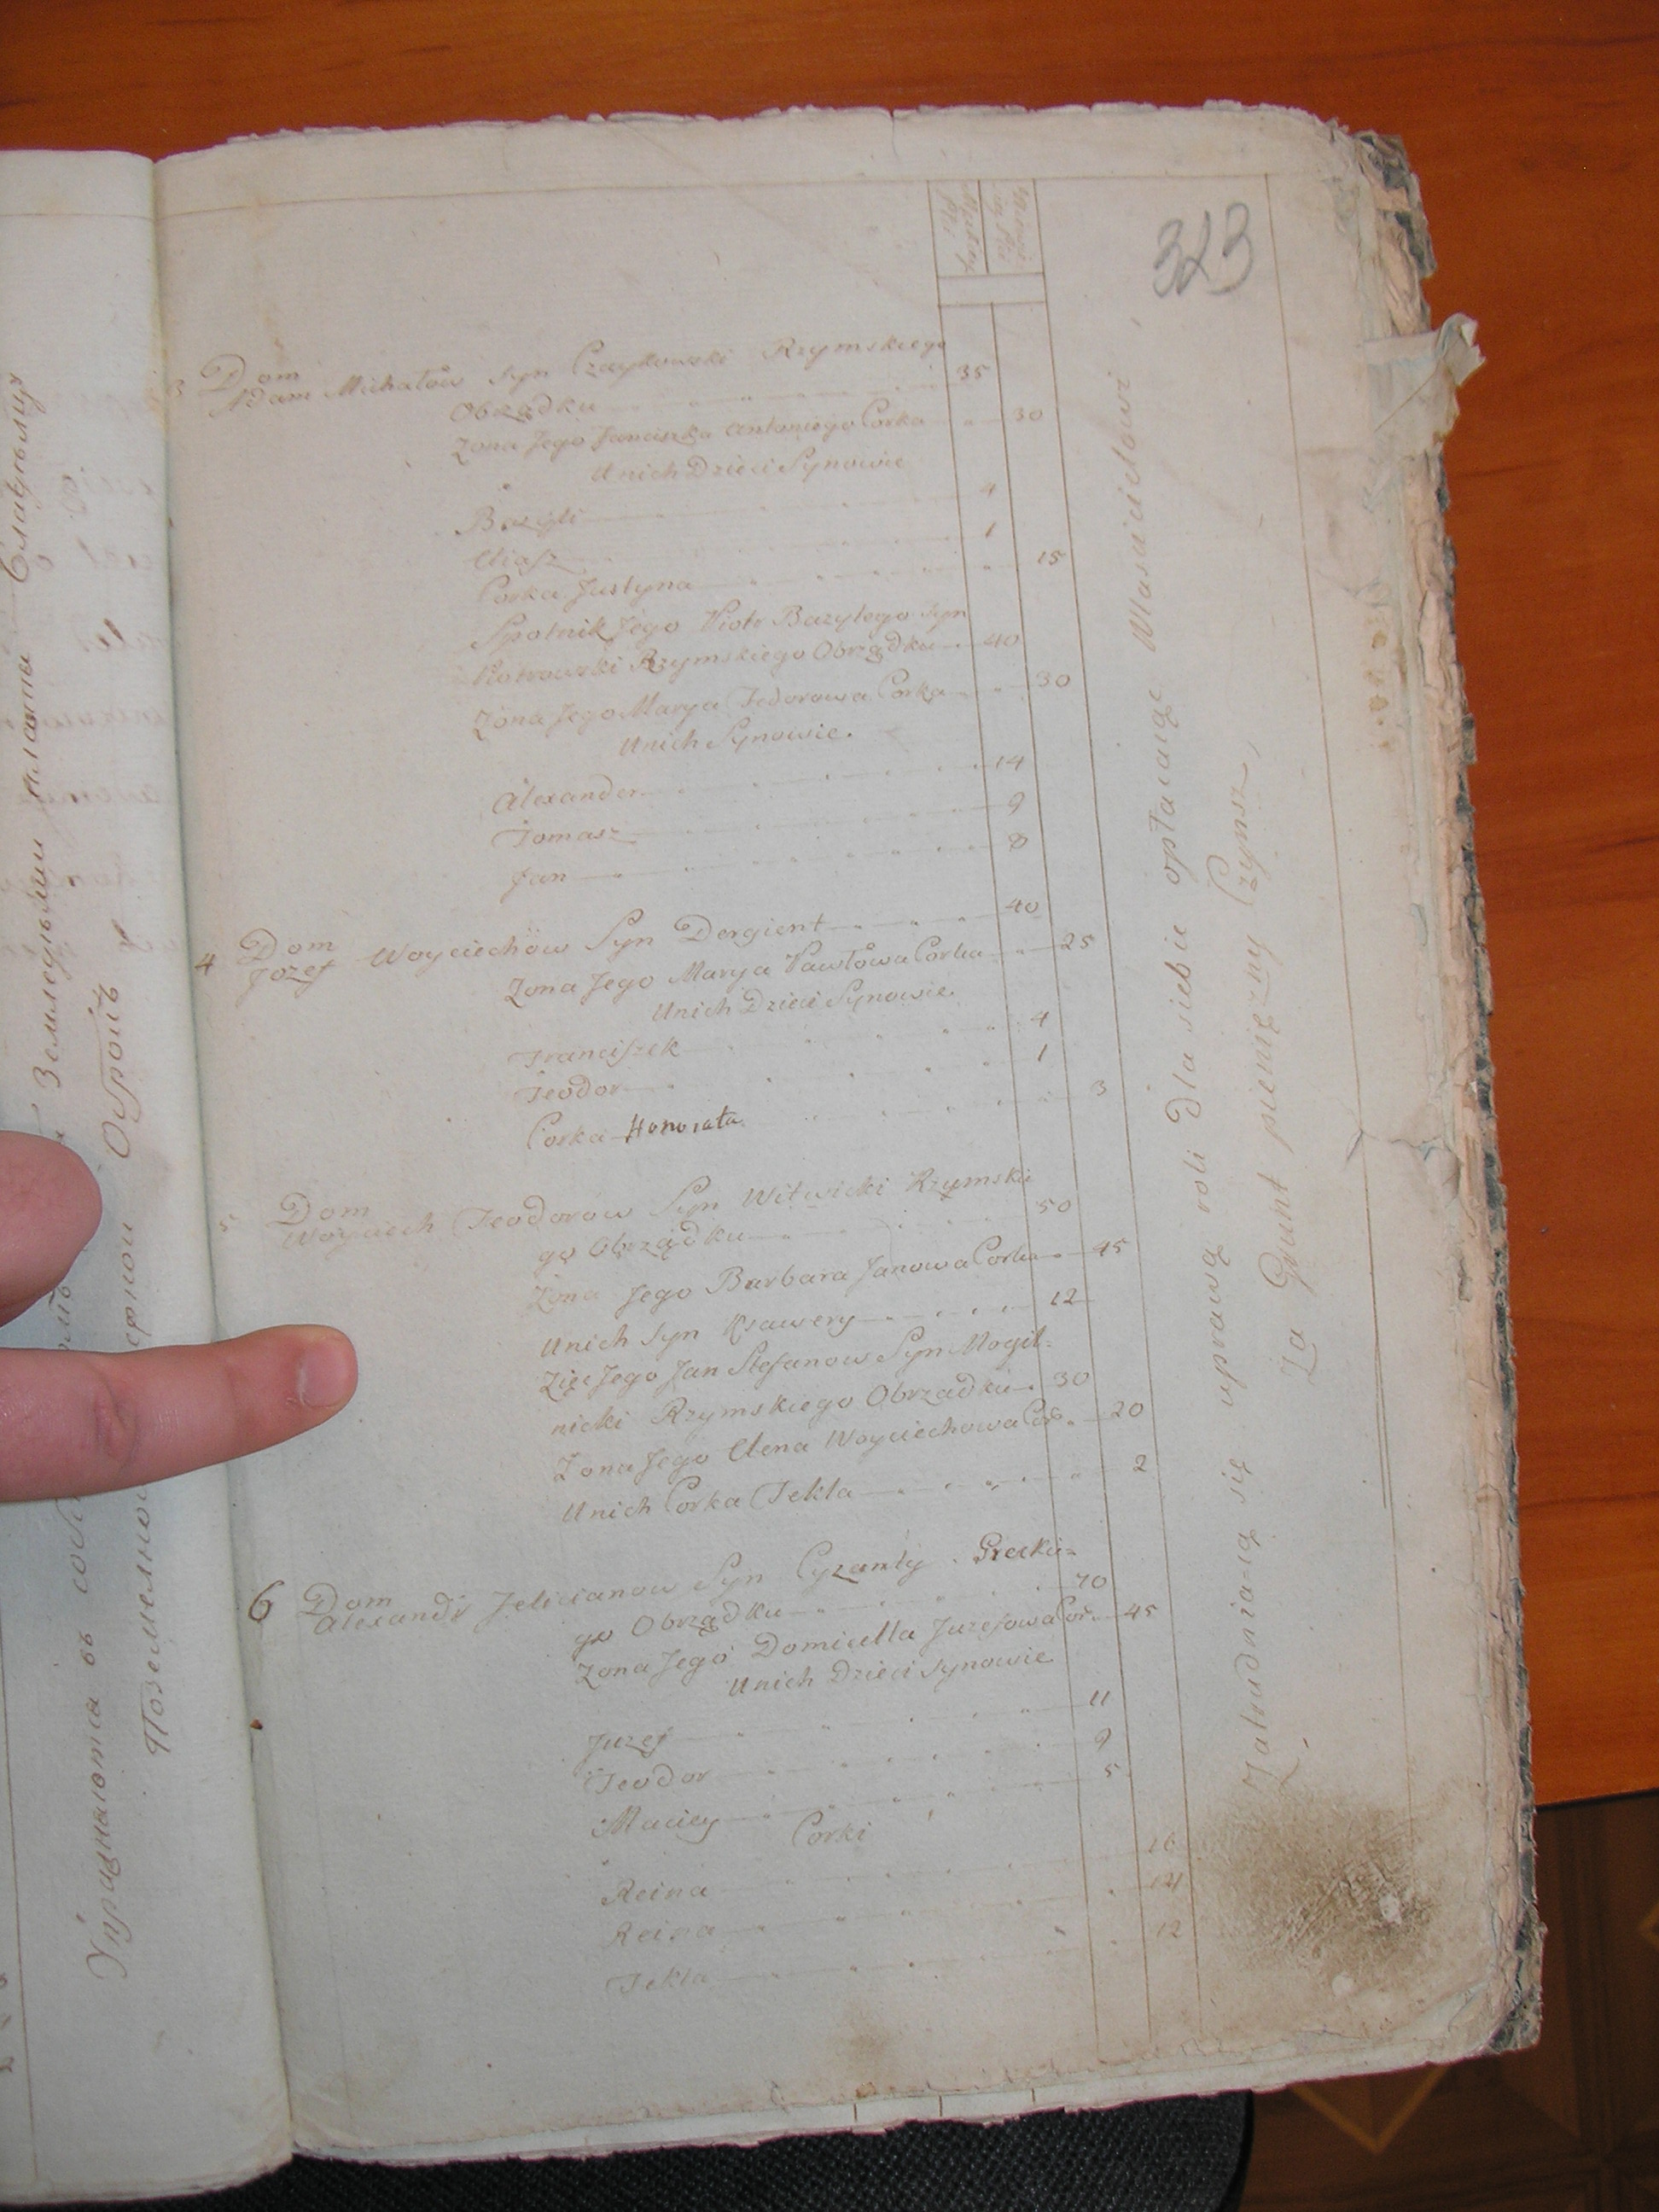 323
3 Dom
Adam Michałów Syn Czaykowski Rzymskiego
Obrządku 35
Zona Jego Franciszka Antoniego Corka 30
Unich Dzieci Synowie
Bazyli 4
Eliasz 1
Corka Justyna 15
Spolnik Jego Piotr Bazylego Syn
Piotrowski Rzymskiego Obrządku 40
Zona Jego Marya Fedorowa Corka 30
Unich Synowie.
Alexander 14
Tomasz 9
Jan 8
4 Dom
Jozef Woyciechów Syn Dergient 40
Zona Jego Marya Pawłowa Corka 25
Unich Dzieci Synowie
Franciszek 4
Teodor 1
Corka Honorata 3
5 Dom
Woyciech Teodorow Syn Witwicki Rzymskie
go Obrządku 50
Zona Jego Barbara Janowa Corka 45
Unich Syn Ksawery 12
Zięc Jego Jan Stefanow Syn Mogil-
nicki Rzymskiego Obrządku 30
Zona Jego Elena Woyciechowa Cor. 20
Unich Corka Tekla 2
6 Dom
Alexandr Felicianow Syn Cyzanty Greckie=
go Obrządku 70
Zona Jego Domicella Juzefowa Cor. 45
Unich Dzieci Synowie
Juzef 11
Teodor 9
Maciey 5
Corki
Reina 16
Reina 14
Tekla 12
Zatrudnia-ią się uprawą roli dla siebie opłacaiąc Własicielowi
Za Grunt pieniężny Czynsz,